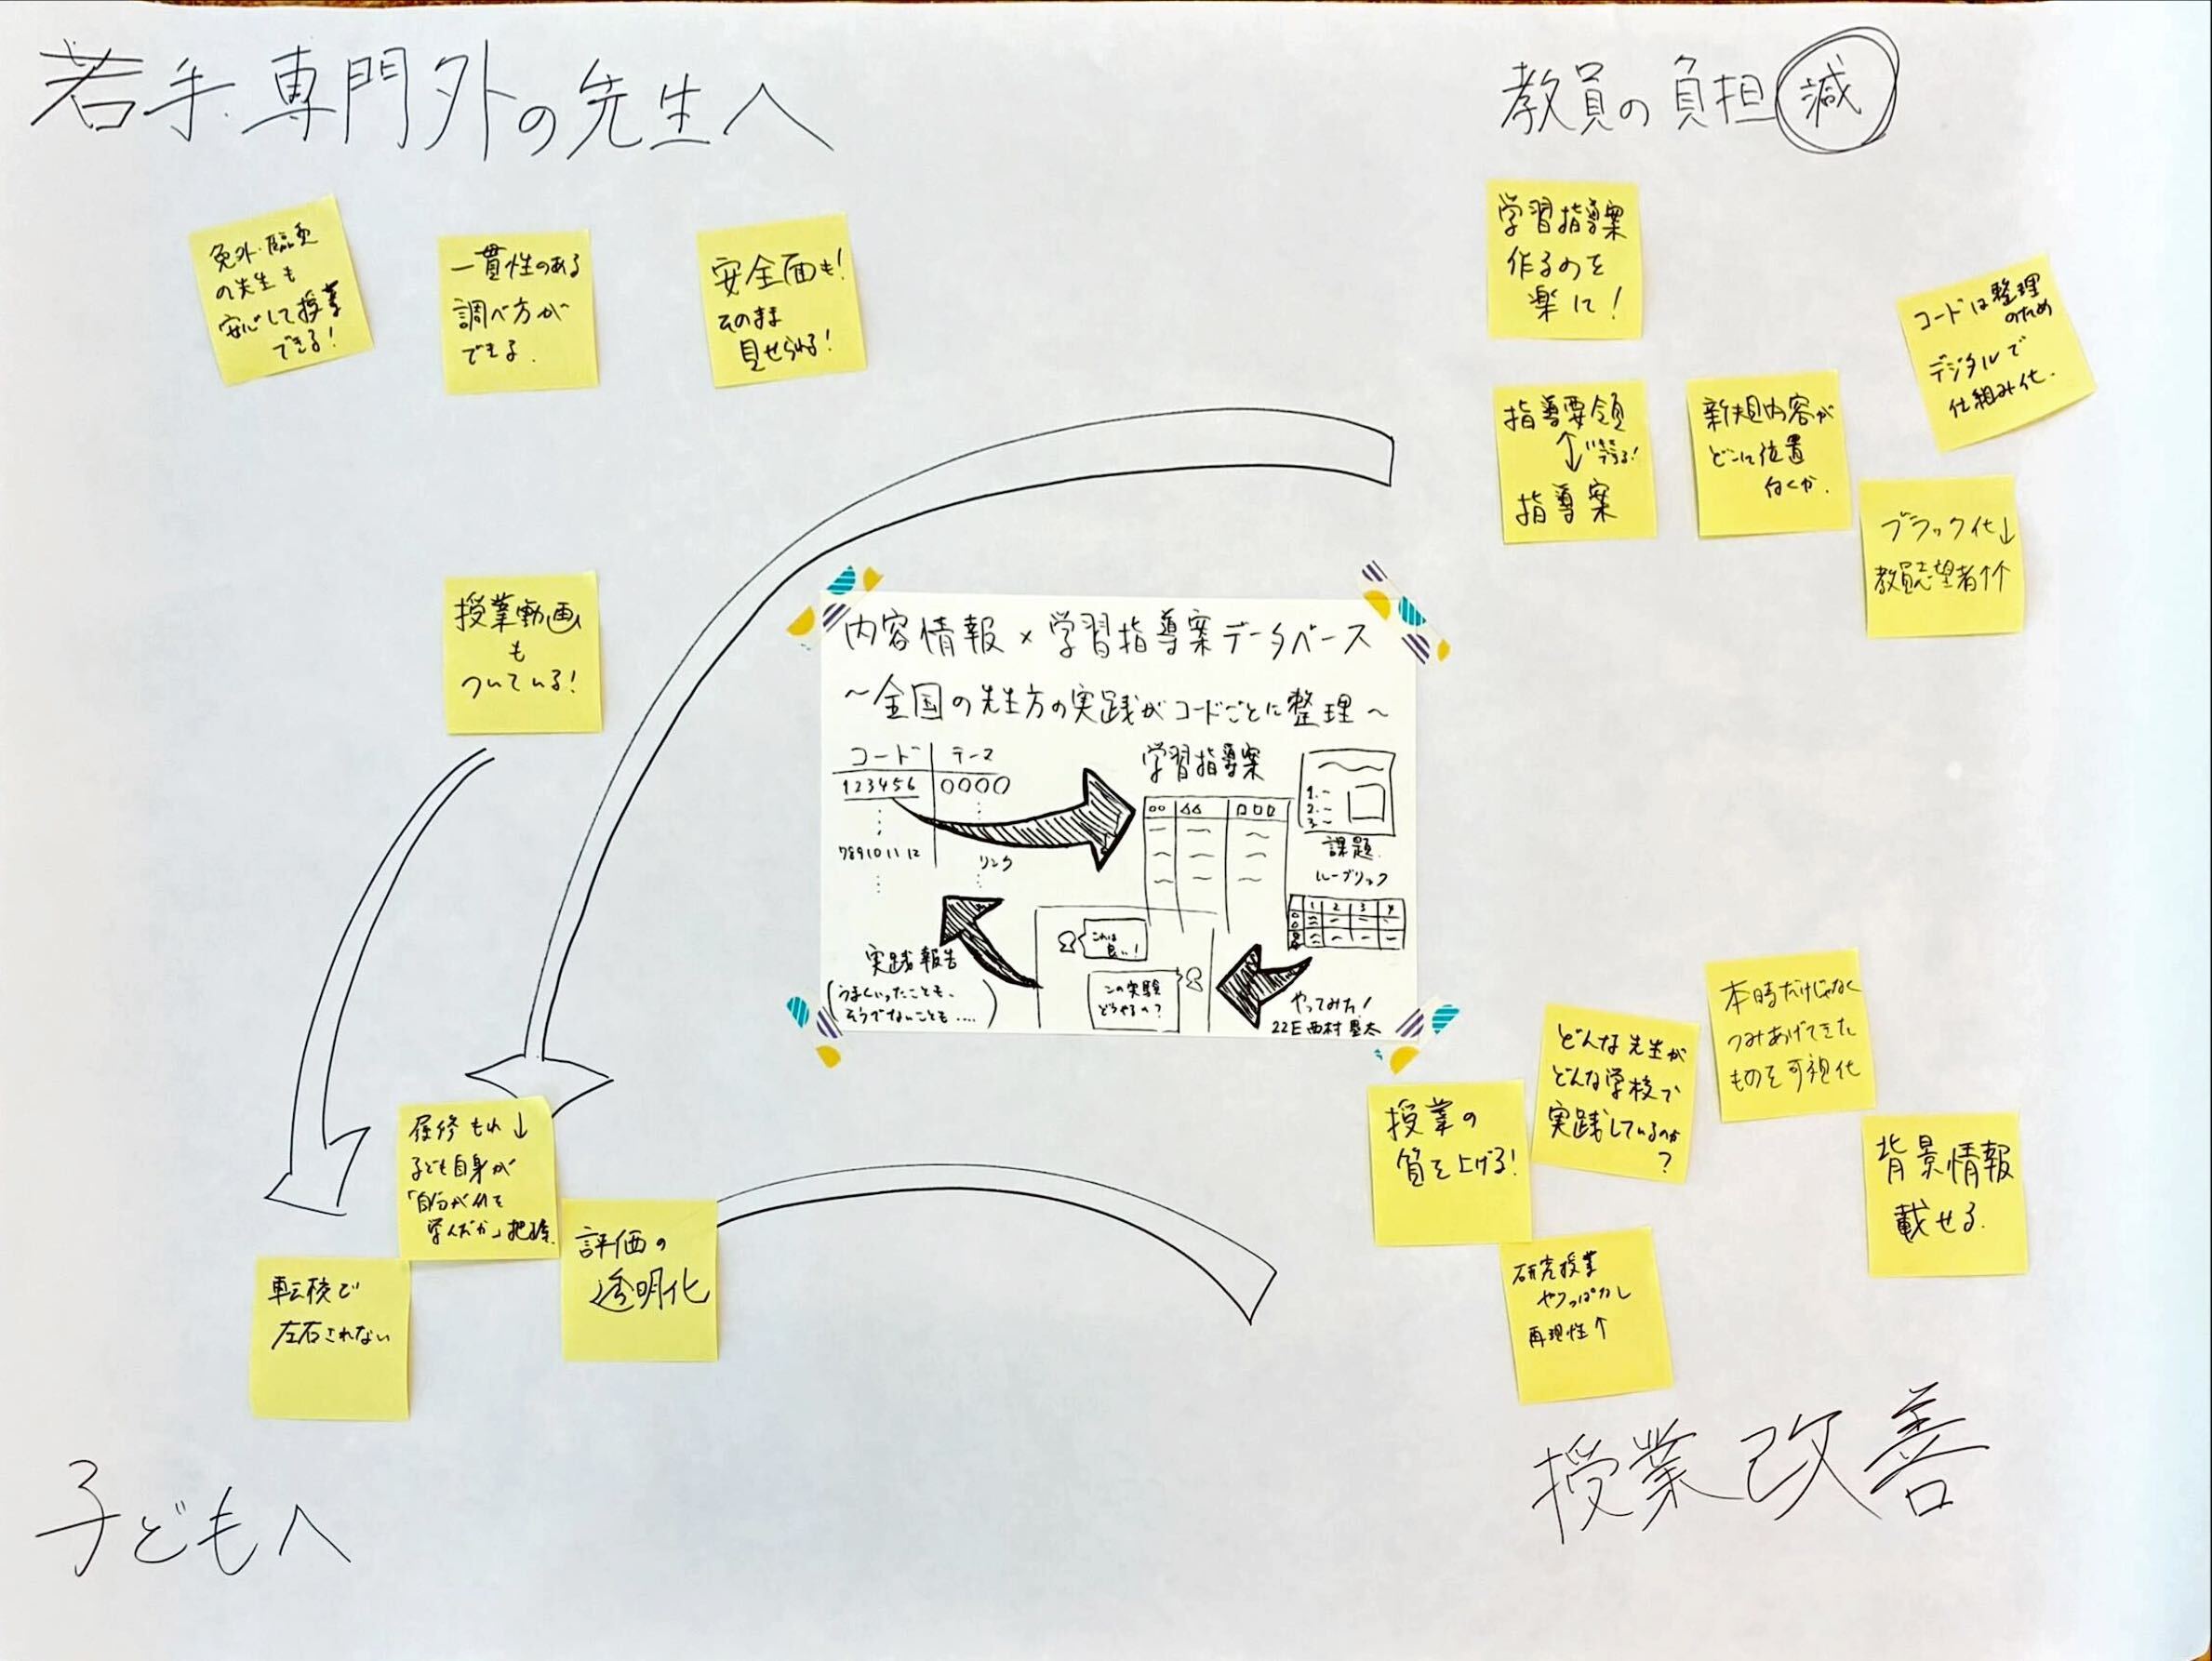 若手・専門外の先生へ
免外・臨免
の先生も
安心して授業
できる!
一貫性のある
調べ方が
できる.
安全面も!
そのまま
見せられる!
授業動画
も
ついている!
教員の負担 減
学習指導案
作るのを
楽に!
指導要領
指導案
新規内容が
どこに位置
付くか.
コードは整理
のため
デジタルで
仕組み化.
ブラック化↓
教員志望者↑↑
内容情報×学習指導案データベース
~全国の先生方の実践がコードごとに整理~
コード テーマ
123456 〇〇〇〇
789101112
リンク
学習指導案
○○ △△ □□□
1.
2.
3.
課題
ルーブリック
1 2 3 4
これは
良い!
この実験
どうやるの?
実践報告
(うまくいったことも、
そうでないことも....)
やってみた!
22E 西村
履修もれ↓
子ども自身が
学んだか」把握.
転校で
左右されない
評価の
透明化
子どもへ
授業の
質を上げる!
どんな先生が
どんな学校で
実践しているのか
?
本時だけじゃなく
つみあげてきた
ものを可視化
背景情報
載せる.
研究授業
やりっぱなし
再現性↑
授業改善